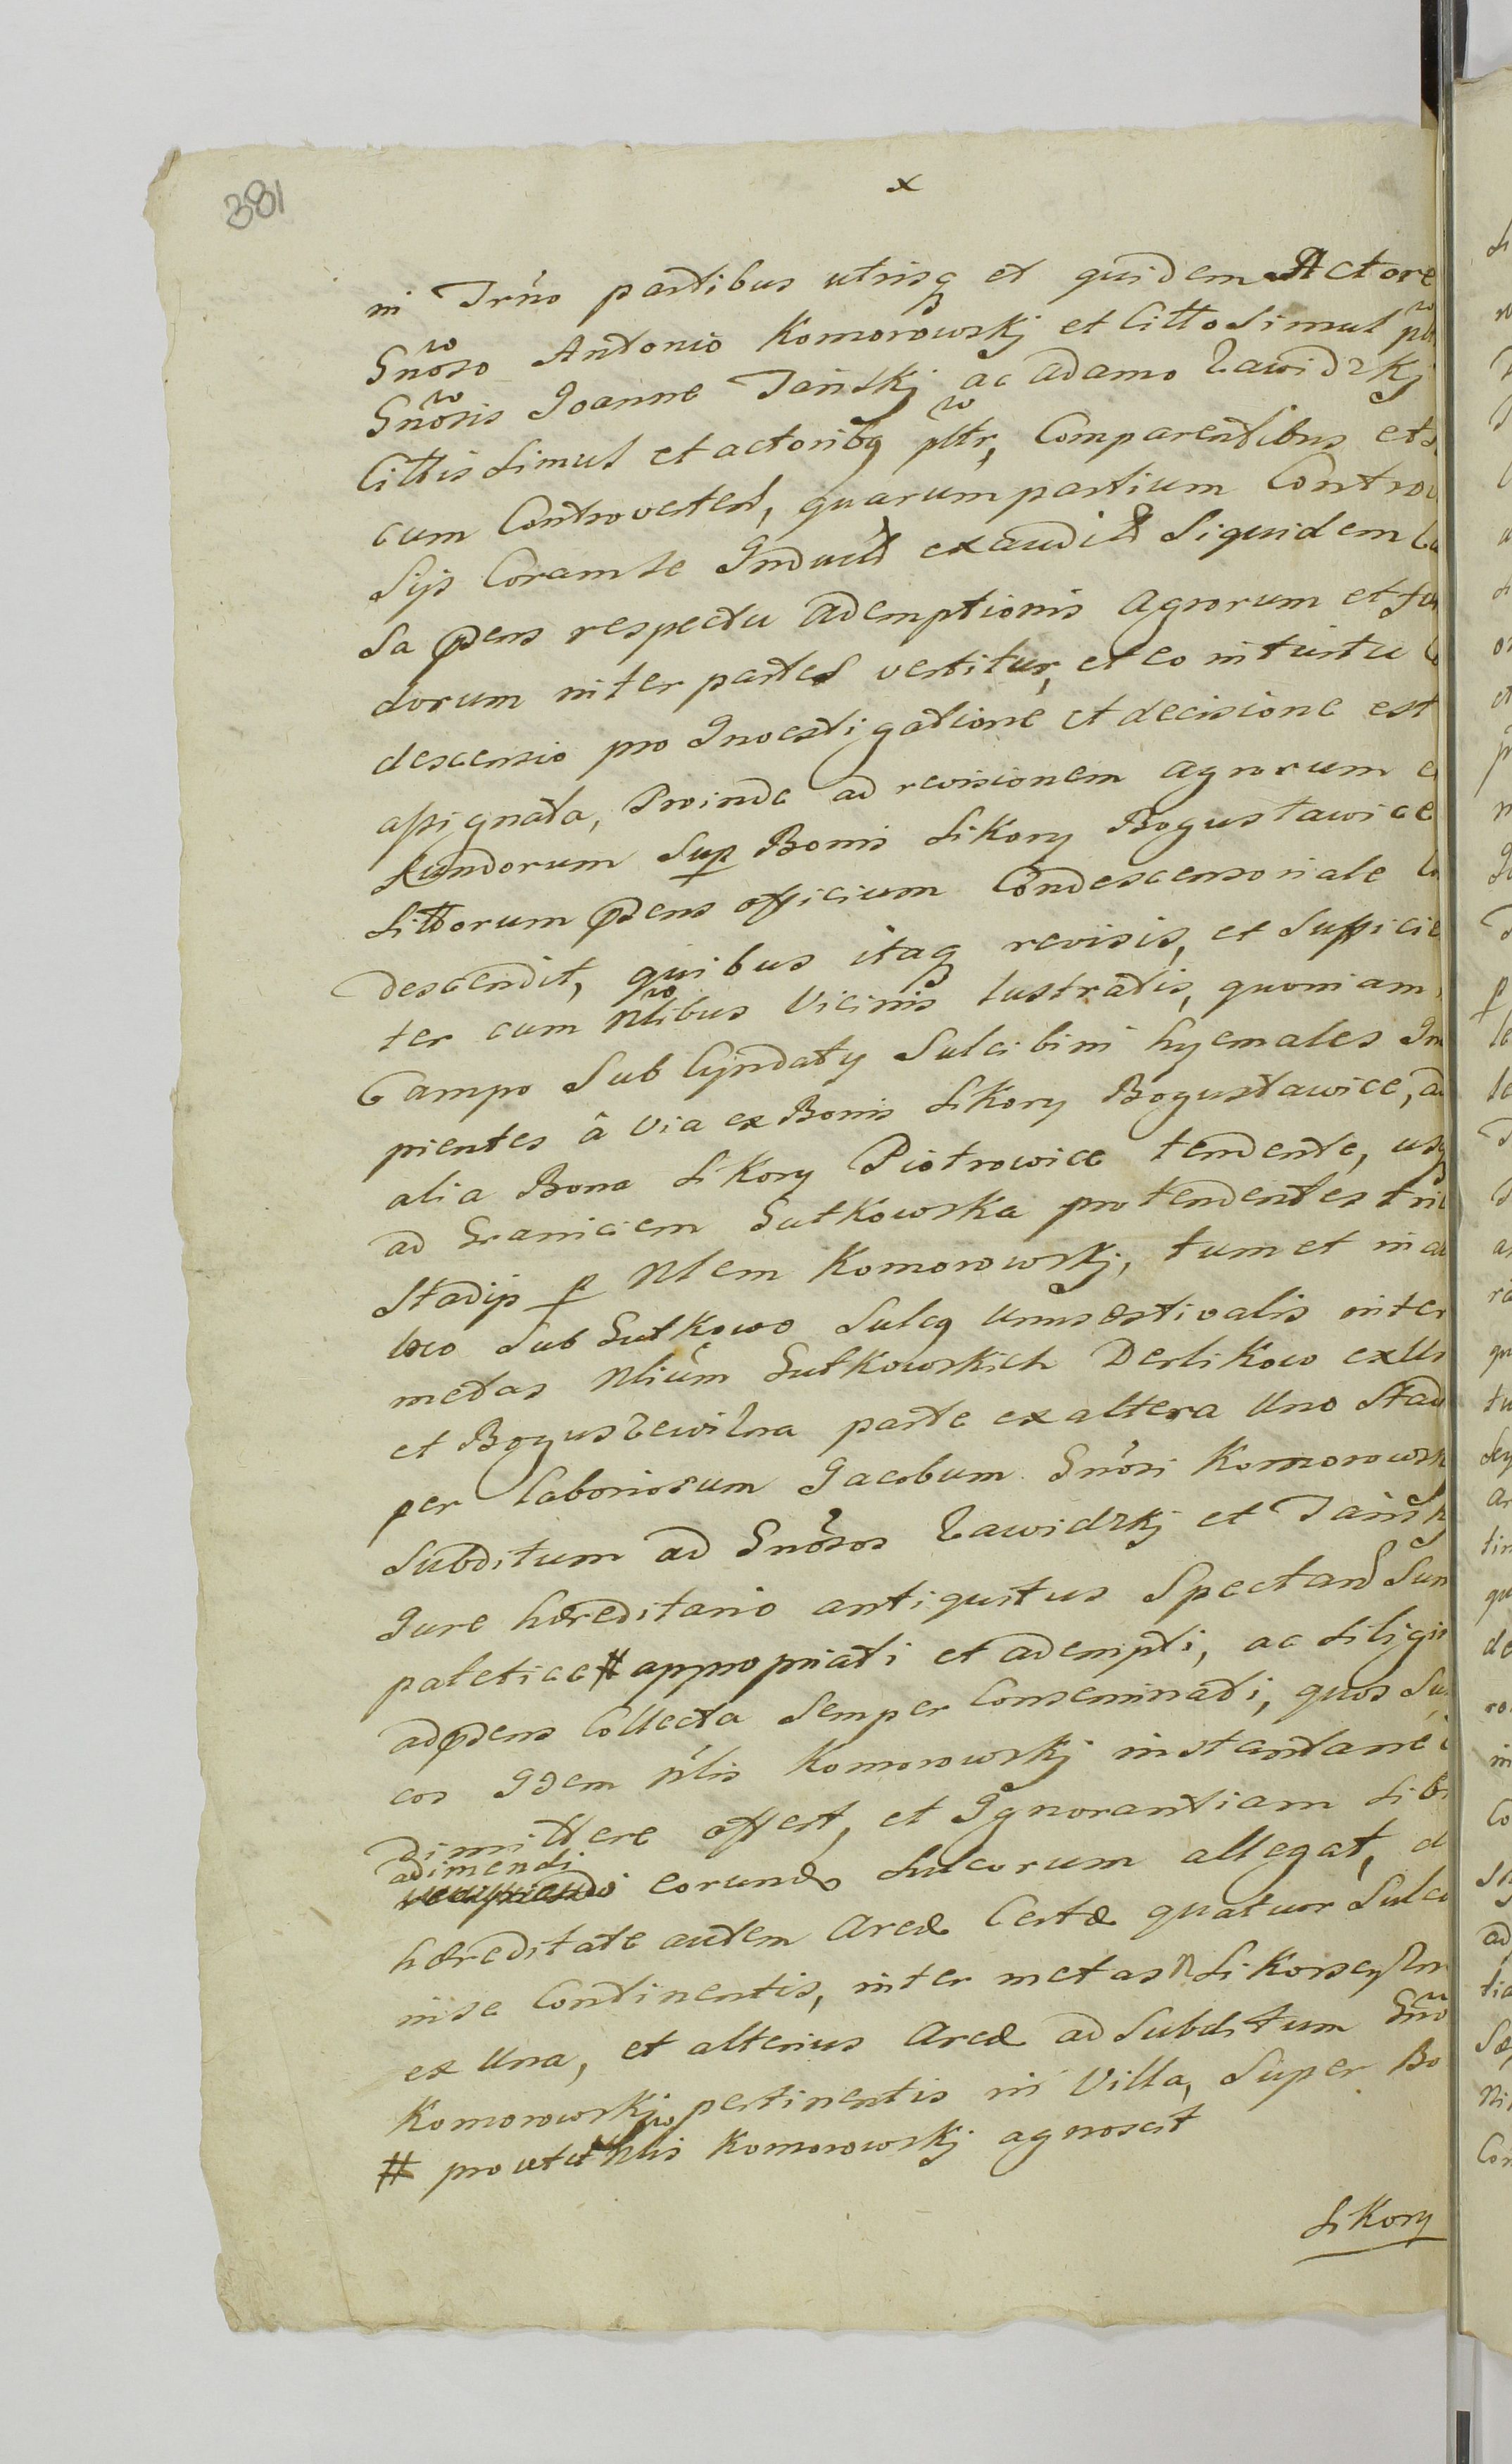 381
x
in Trno partibus utrisq et quidem Actore
Gnoso Antonio Komorowskj et Citto Simul
Gnosis Joanne Tanskj ac Adamo Zawidzkj
Cittis Simul et actoribq pttr, Comparentibus et
cum Controvertend, quarum partium Controv
sijs Coram se Induct exaudit Siquidem Ca
sa pdens respectu ademptionis Agrorum et fun
dorum inter partes vertitur, et eo intuitu Co
descensio pro Investigatione et decisione est
assignata, Proinde ad revisionem agrorum e
Fundorum Sup Bonis Sikory Bogusławice
Sittorum pdens officium Condescensoriale Co
descendit, quibus itaq revisis, et Sufficie
ter cum Nlibus Vicinis lustratis, quoniam
Campo Sub Cyndaty Sulci bini hyemales In
pientes â via ex Bonis Sikory Bogusławice, ad
alia Bona Sikory Piotrowice tendente, usq
ad Graniciem Gutkowska protendentes tri
Stadijs p Nlem Komorowskj, tum et in a
loco Sub Gutkowo Sulcq Unus æstivalis inter
metas Nlium Gutkowskich Derlikow ex Un
et Boguszewizna parte ex altera Uno Stad
per laboriosum Jacobum Gnosi Komorowsk
Subditum ad Gnosos Zawidzkj et Tansk
Jure hæreditario antiquitus Spectand Sun
patetice # appropriati et adempti, ac Siligin
ad pdens Collecta Semper Conseminati, quos Su
eos Idem Nlis Komorowskj instantane
Dimittere offert, et Ignorantiam Sibi
adimendi
eorundo Sulcorum allegat, d
hæreditate autem Areæ Certæ quatuor Sulco
in se Continentis, inter metas Sikorscyzn
ex Una, et alterius Areæ ad Subditum Gno
Komorowskj pertinentis in Villa, Super Bo
# prout Nlis Komorowskj agnoscit
Sikory